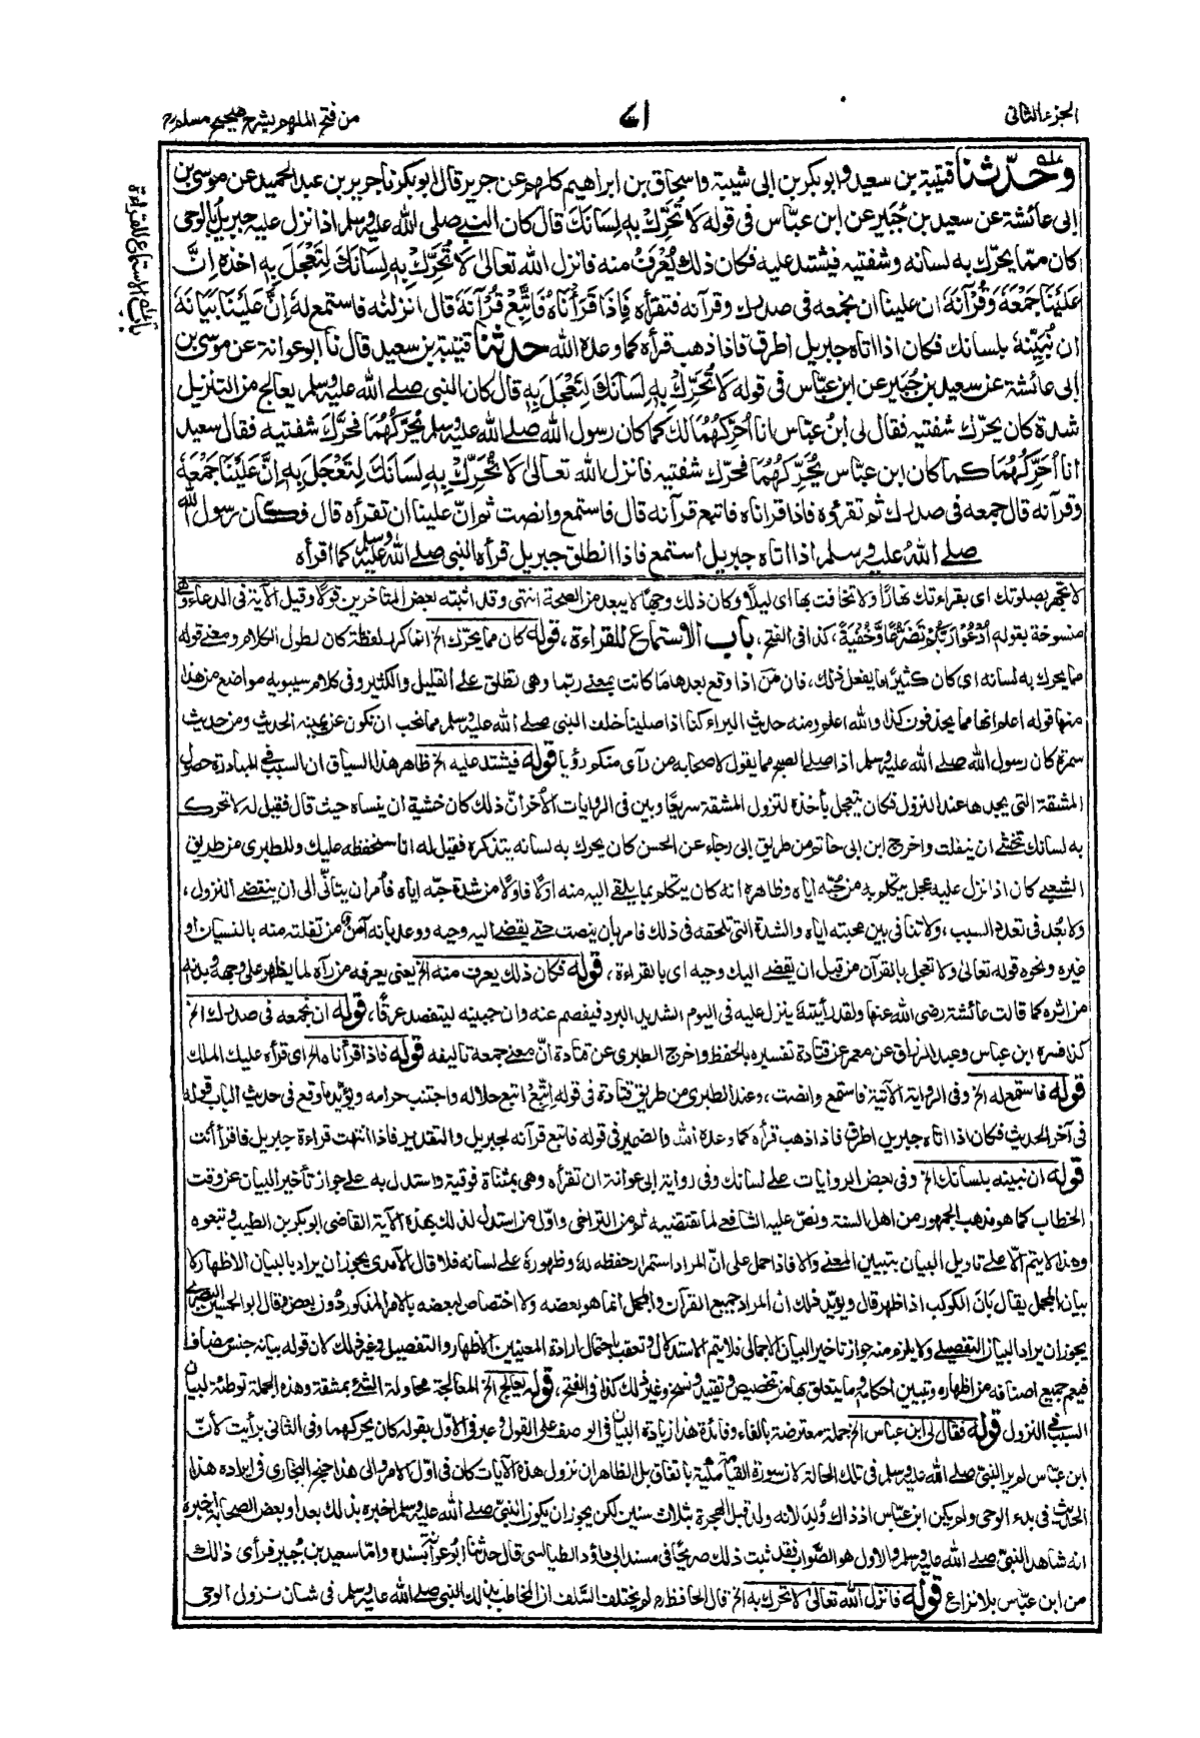 الجزء الثاني
٧١
من فتح الملهم بشرح صحيح مسلم
باب الاستماع للقراءة
وحدّثنا قتيبة بن سعيد وابو بكر بن ابى شيبة واسحاق بن ابراهيم كلهم عن جرير قال ابو بكر نا جرير بن عبد الحميد عن موسى بن
ابى عائشة عن سعيد بن جُبَير عن ابن عبّاس فى قوله لَا تُحَرِّكْ بِهٖ لِسَانَكَ قال كان النبي صلى الله عليه وسلم اذا نزل عليه جبريل بالوحى
كان ممّا يحرّك به لسانه وشفتيه فيشتد عليه فكان ذلك يُعْرَفُ منه فانزل الله تعالىٰ لَا تُحَرِّكْ بِهٖ لِسَانَكَ لِتَعْجَلَ بِهٖ اخذه اِنَّ
عَلَيْنَا جَمْعَهٗ وَقُرْاٰنَهٗ ان علينا ان نجمعه فى صدرك وقرآنه فتقرأه فَاِذَا قَرَأْنَاهُ فَاتَّبِعْ قُرْاٰنَهٗ قال انزلناه فاستمع له اِنَّ عَلَيْنَا بَيَانَهٗ
ان نُبَيِّنَهٗ بلسانك فكان اذا اتاه جبريل اطرق فاذا ذهب قرأه كما وعده الله حدثنا قتيبة بن سعيد قال نا ابو عوانة عن موسى بن
ابى عائشة عن سعيد بن جُبَير عن ابن عبّاس فى قوله لَا تُحَرِّكْ بِهٖ لِسَانَكَ لِتَعْجَلَ بِهٖ قال كان النبى صلے الله عليه وسلم يعالج من التنزيل
شدة كان يحرّك شفتيه فقال لى ابنُ عبّاس انا اُحَرِّكُهُمَا لك كما كان رسول الله صلے الله عليه وسلم يُحَرِّكُهُمَا فحرَّك شفتيه فقال سعيد
انا اُحَرِّكُهُمَا كما كان ابن عبّاس يُحَرِّكُهُمَا فحرّك شفتيه فانزل الله تعالىٰ لَا تُحَرِّكْ بِهٖ لِسَانَكَ لِتَعْجَلَ بِهٖ اِنَّ عَلَيْنَا جَمْعَهٗ
وقرآنه قال جمعه فى صدرك ثم تقرؤه فاذا قراناه فاتبع قرآنه قال فاستمع وانصت ثم انّ علينا ان تقرأه قال فكان رسول الله
صلے اللهُ عليه وسلم اذا اتاه جبريل استمع فاذا انطلق جبريل قرأه النبى صلے الله عليه وسلم كما اقرأه
لا تجهر بصلوتك اى بقراءتك نهارًا ولا تخافت بها اى ليلًا وكان ذلك وجهًا لا يبعد من الصحة انتهى وقد اثبته بعض المتأخرين قولًا وقيل الآية فى الدعاء وهى
منسوخة بقوله اُدْعُوْا رَبَّكُمْ تَضَرُّعًا وَّخُفْيَةً، كذا فى الفتح، باب الاستماع للقراءة، قوله كان مما يحرّك الخ انما كرر لفظة كان لطول الكلام ومعنى قوله
مما يحرك به لسانه اى كان كثيرًا ما يفعل ذلك، فان من اذا وقع بعدها ما كانت بمعنى ربما وهى تطلق على القليل والكثير وفى كلام سيبويه مواضع من هذا
منها قوله اعلم انها مما يحذفون كذا والله اعلم ومنه حديث البراء كنا اذا صلينا خلف النبى صلے الله عليه وسلم مما نحب ان نكون عن يمينه الحديث ومن حديث
سمرة كان رسول الله صلے الله عليه وسلم اذا صلے الصبح مما يقول لاصحابه من رآى منكم رؤيا قوله فيشتد عليه الخ ظاهر هذا السياق ان السبب فى المبادرة حصول
المشقة التى يجدها عند النزول فكان يتعجل بأخذه لتزول المشقة سريعًا وبين فى الروايات الأخر انّ ذلك كان خشية ان ينساه حيث قال فقيل له لا تحرك
به لسانك تخشى ان ينفلت واخرج ابن ابى حاتم من طريق ابى رجاء عن الحسن كان يحرك به لسانه يتذكره فقيل له انا سنحفظه عليك وللطبرى من طريق
الشعبى كان اذا نزل عليه عجل يتكلم به من حبّه اياه وظاهره انه كان يتكلم بما يلقى اليه منه اولًا فاولًا من شدة حبّه اياه فأمر ان يتأنّى الى ان ينقضى النزول،
ولا بُعد فى تعدد السبب، ولا تنافى بين محبته اياه والشدة التى تلحقه فى ذلك فامر بان ينصت حتى يقضى اليه وحيه ووعد بانه آمن من تفلته منه بالنسيان او
غيره ونحوه قوله تعالى ولا تعجل بالقرآن من قبل ان يقضى اليك وحيه اى بالقراءة، قوله فكان ذلك يعرف منه الخ يعنى يعرفه من رآه لما يظهر على وجهه وبدنه
من اثره كما قالت عائشة رضى الله عنها ولقد رأيته ينزل عليه فى اليوم الشديد البرد فيفصم عنه وان جبينه ليتفصد عرقًا، قوله ان نجمعه فى صدرك الخ
كذا فسره ابن عباس وعبد الرزاق عن معمر عن قتادة تفسيره بالحفظ واخرج الطبرى عن قتادة انّ معنى جمعه تاليفه قوله فاذا قرأناه الخ اى قرأه عليك الملك
قوله فاستمع له الخ وفى الرواية الآتية فاستمع وانصت، وعند الطبرى من طريق قتادة فى قوله اتبع اتبع حلاله واجتنب حرامه ويؤيد ما وقع فى حديث الباب قوله
فى آخر الحديث فكان اذا اتاه جبريل اطرق فاذا ذهب قرأه كما وعده الله والضمير فى قوله فاتبع قرآنه لجبريل والتقدير فاذا انتهت قراءة جبريل فاقرأ انت
قوله ان نبينه بلسانك الخ وفى بعض الروايات على لسانك وفى رواية ابى عوانة ان تقرأه وهى بمثناة فوقية واستدل به على جواز تأخير البيان عن وقت
الخطاب كما هو مذهب الجمهور من اهل السنة ونصّ عليه الشافعى لما تقتضيه ثم من التراخى واوّل من استدل لذلك بهذه الآية القاضى ابو بكر بن الطيب وتبعوه
وهذا لا يتم الّا على تاويل البيان بتبيين المعنى والا فاذا حمل على انّ المراد استمرار حفظه له وظهوره على لسانه فلا قال الآمدى يجوز ان يراد بالبيان الاظهار لا
بيان المجمل يقال بَانَ الكوكب اذا ظهر قال ويؤيد ذلك ان المراد جميع القرآن والمجمل انما هو بعضه ولا اختصاص لبعضه بالامر المذكور دون بعض وقال ابو الحسين البصرى
يجوز ان يراد البيان التفصيلى ولا يلزم منه جواز تاخير البيان الاجمالى فلا يتم الاستدلال وتعقب باحتمال ارادة المعنيين الاظهار والتفصيل وغير ذلك لان قوله بيانه جنس مضاف
فيعم جميع اصنافه من اظهاره وتبيين احكامه وما يتعلق بها من تخصيص وتقييد ونسخ وغير ذلك كذا فى الفتح، قوله يعالج الخ المعالجة محاولة الشئ بمشقة وهذه الجملة توطئة لبيان
السبب فى النزول قوله فقال لى ابن عباس الخ جملة معترضة بالفاء وفائدة هذا زيادة البيان فى الوصف على القول وعبر فى الاوّل بقوله كان يحركهما وفى الثانى برأيت لانّ
ابن عبّاس لم ير النبىّ صلے الله عليه وسلم فى تلك الحالة لان سورة القيامة مكّية باتفاق بل الظاهر ان نزول هذه الآيات كان فى اوّل الامر والى هذا جنح البخارى فى ايراده هذا
الحديث فى بدء الوحى ولم يكن ابن عبّاس اذ ذاك وُلِدَ لانه ولد قبل الهجرة بثلاث سنين لكن يجوز ان يكون النبىّ صلے الله عليه وسلم اخبره بذلك بعد او بعض الصحابة اخبره
انه شاهد النبىّ صلے الله عليه وسلم والاول هو الصّواب فقد ثبت ذلك صريحًا فى مسند ابى داؤد الطيالسى قال حدثنا ابو عوانة بسنده وامّا سعيد بن جُبير فرأى ذلك
من ابن عبّاس بلا نزاع قوله فانزل الله تعالىٰ لا تحرك به الخ قال الحافظ لم يختلف السّلف ان المخاطب بذلك النبى صلے الله عليه وسلم فى شان نزول الوحى